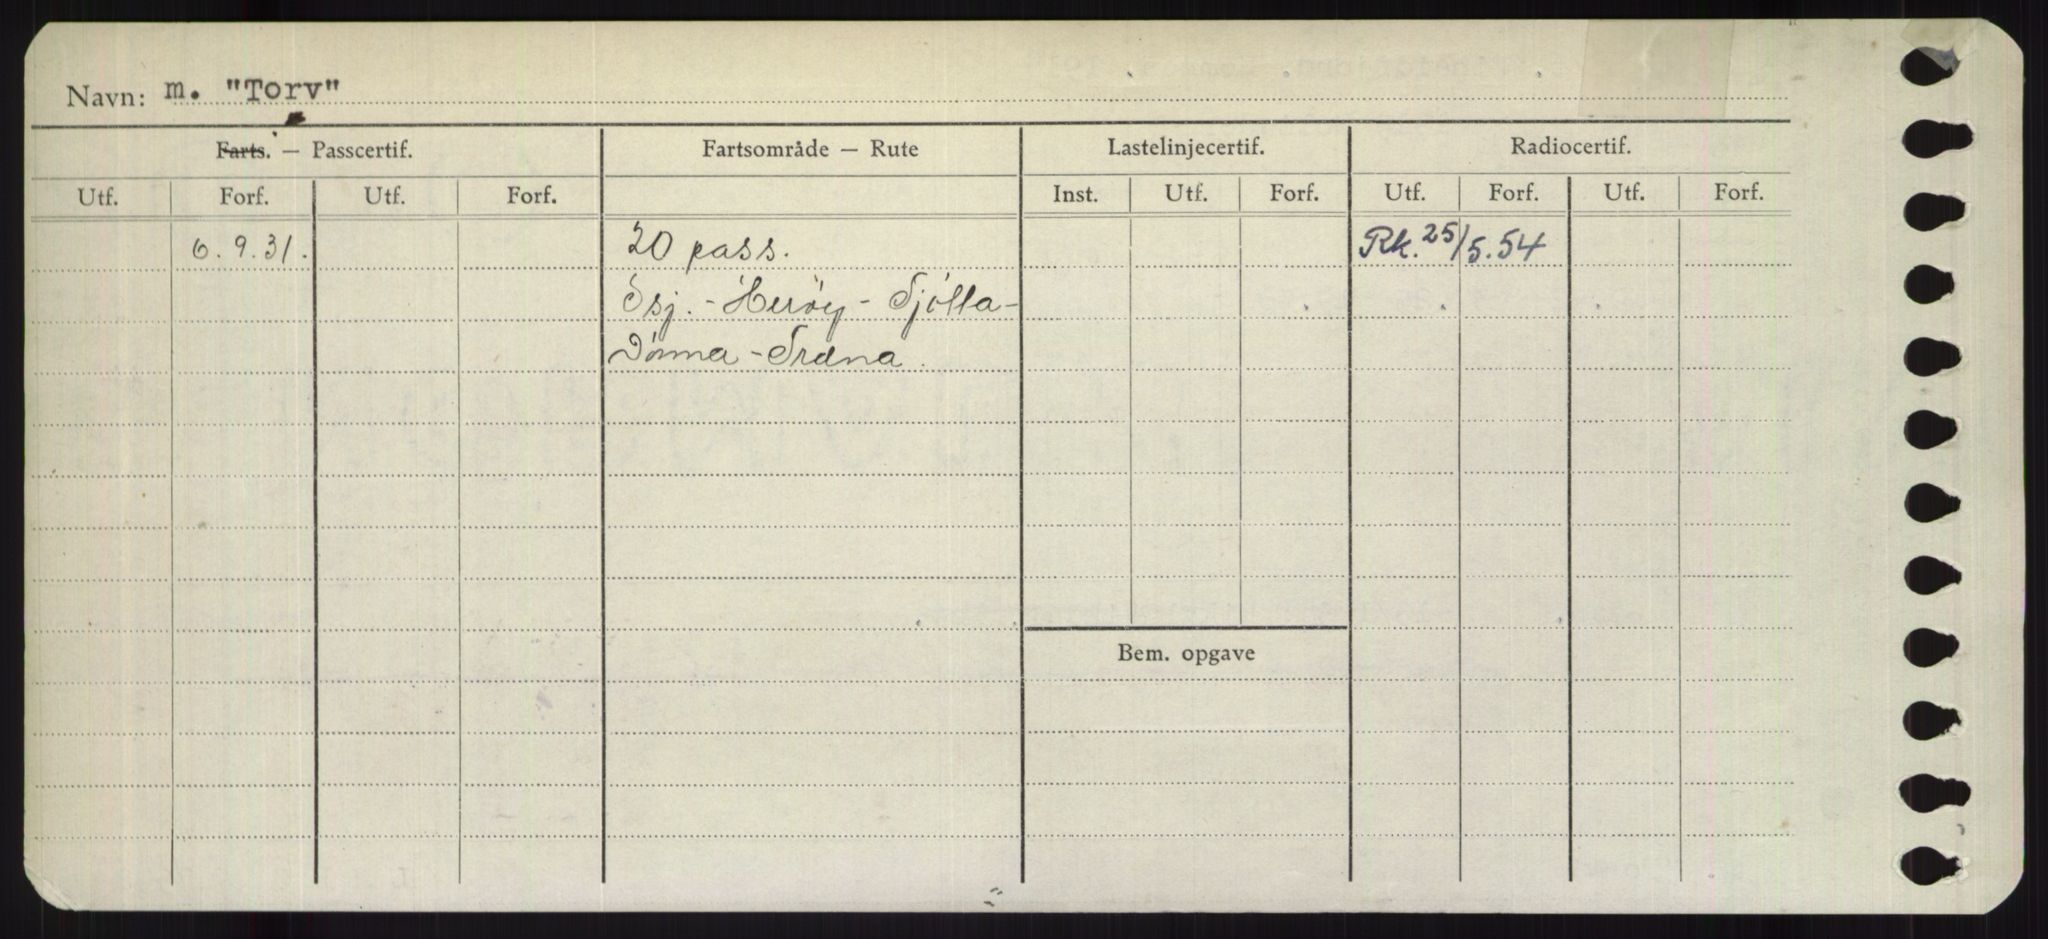 Navn: m. "Torv"
Farts. — Passcertif. Fartsområde — Rute Lastelinjecertif. Radiocertif.
Utf. Forf. Utf. Forf. Inst. Utf. Forf. Utf. Forf. Utf. Forf.
6.9.31. 20 pass. Rk. 25/5.54
Ssj. - Herøy - Tjøtta -
Dønna - Træna.
Bem. opgave